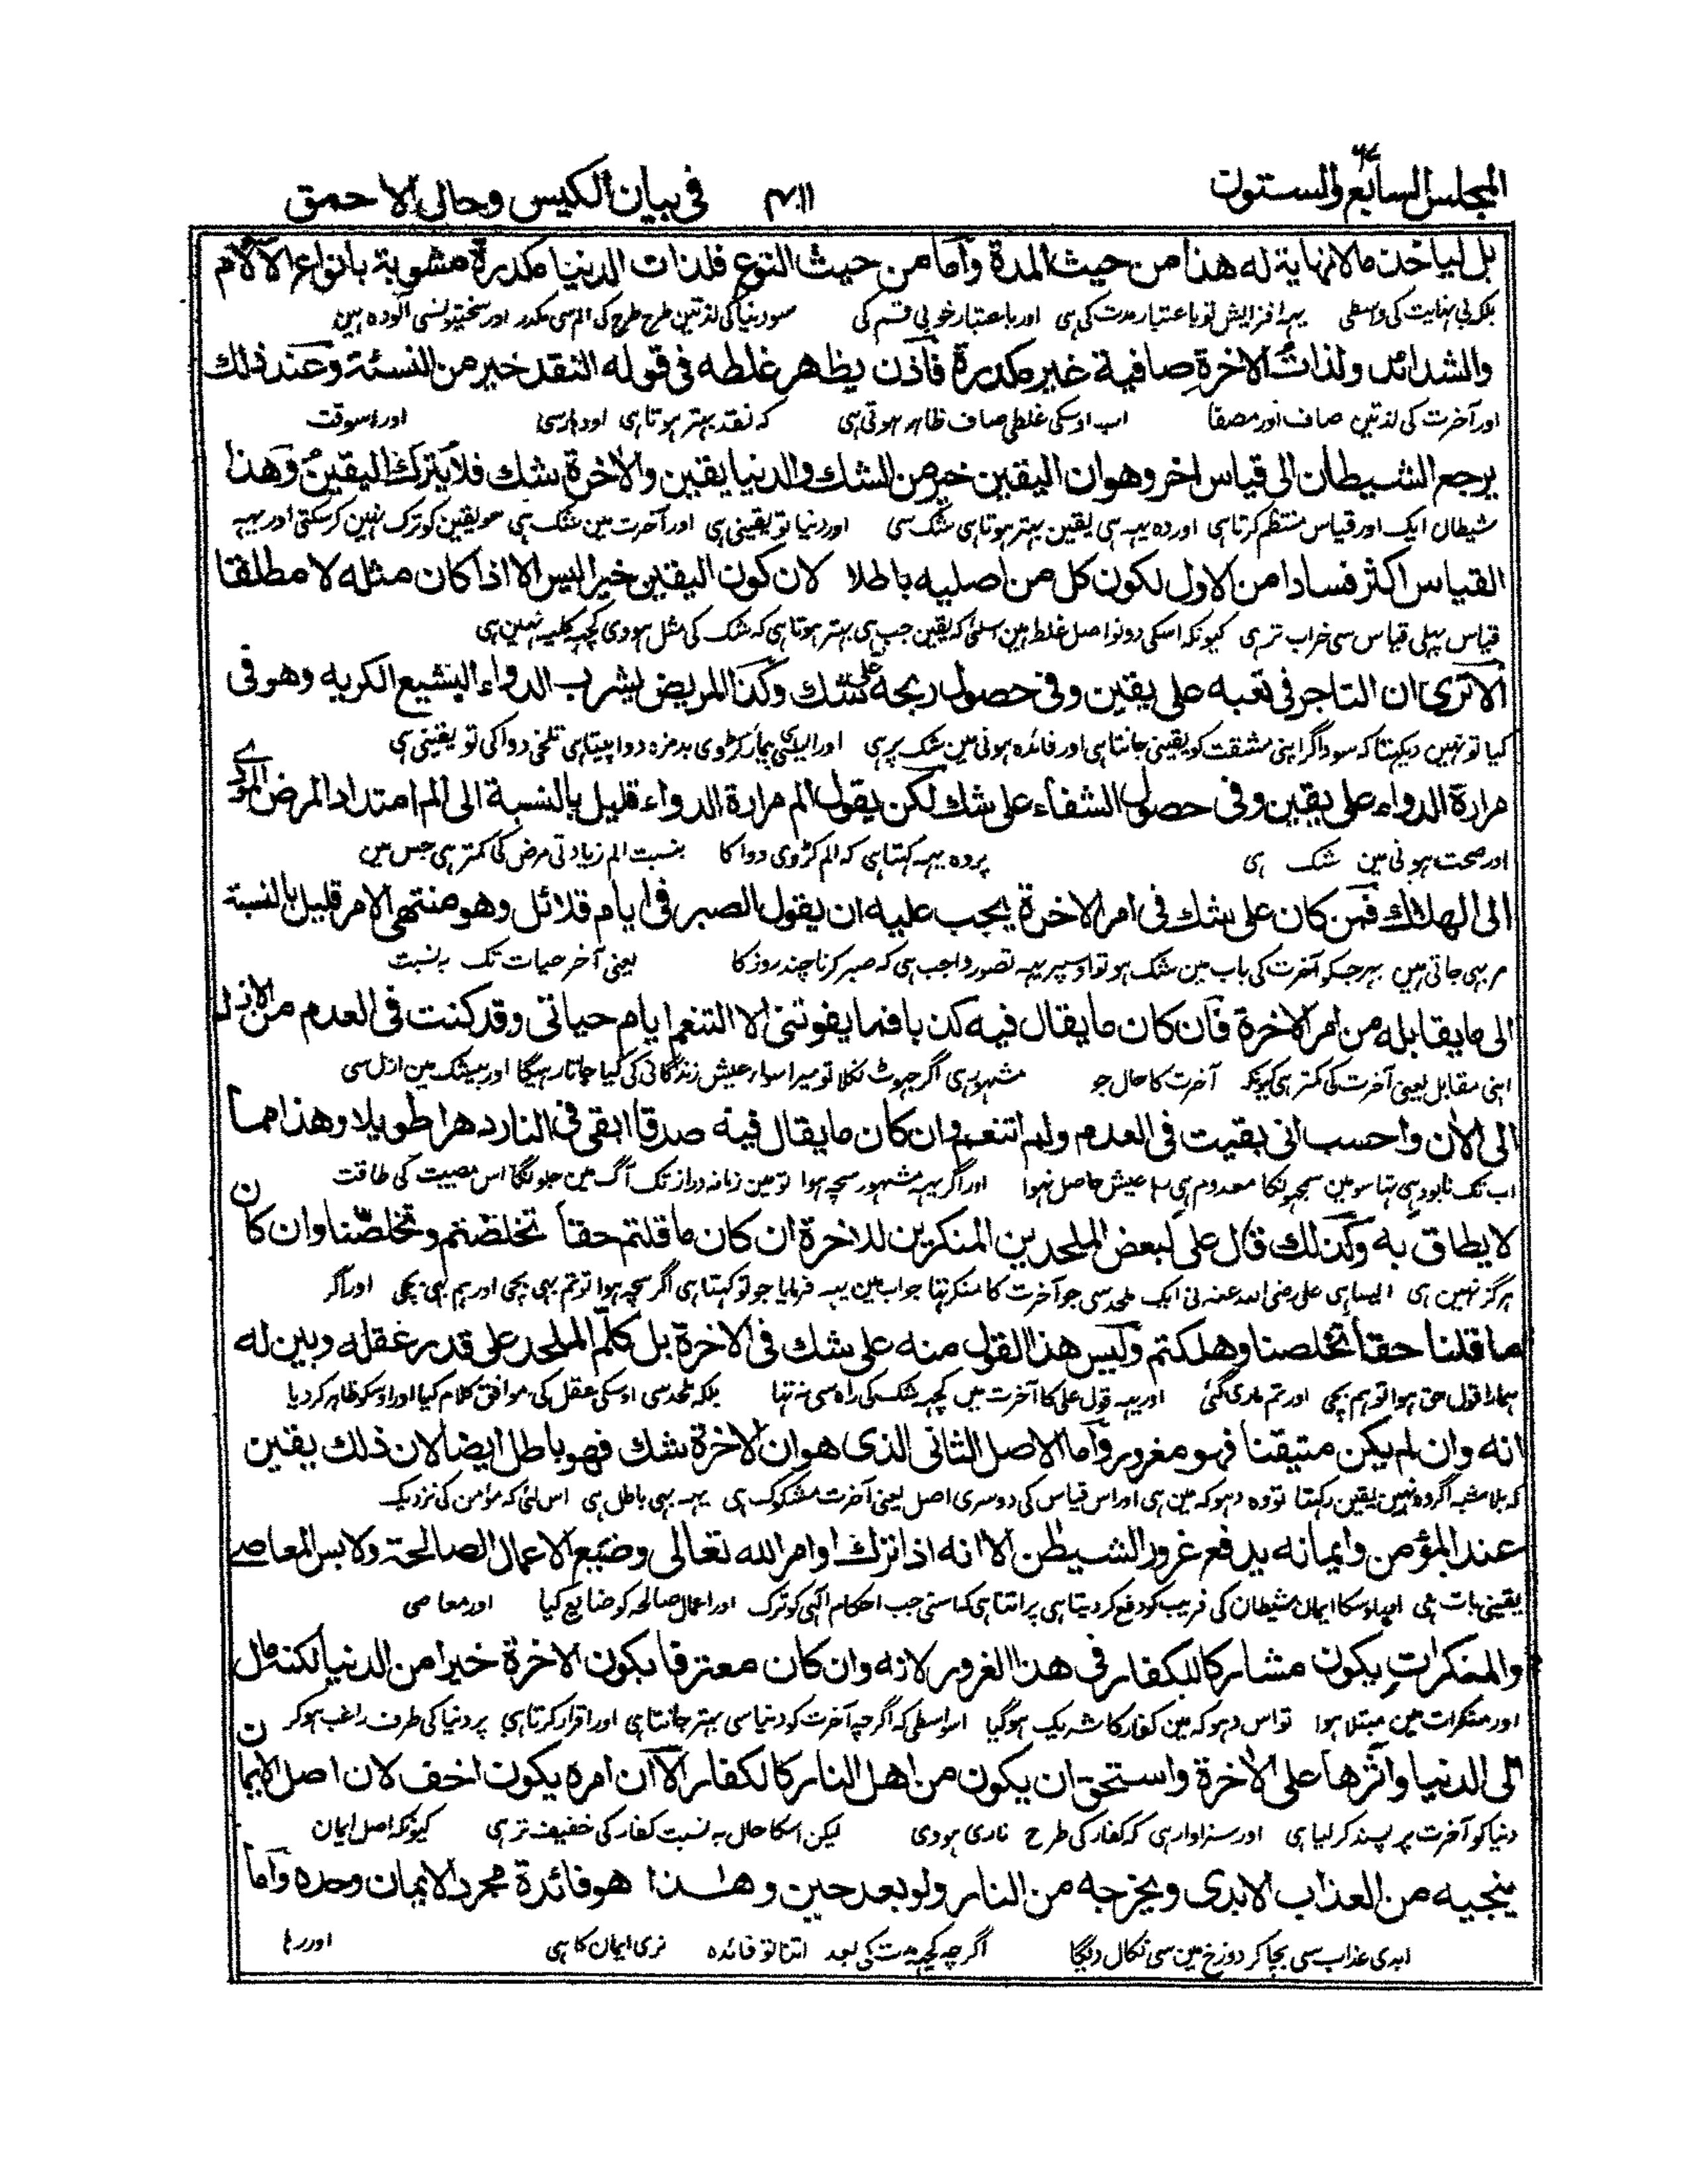 المجلس السابع والستون ۶۷
۴۱۱
فی بیان الکیس وحال الاحمق
بل لیاخذ مالا نهایة له هذا من حیث المدة وأما من حیث النوع فلذات الدنیا مکدرة مشوبة بانواع الآلام
بلکہ بی نہایت کی واسطی یہہ افزایش تو باعتبار مدت کی ہی اور باعتبار خوبی قسم کی سو دنیا کی لذتین طرح طرح کی الم سی مکدر اور سختیونسی آلودہ ہین
والشدائد ولذات الاخرة صافیة غیر مکدرة فاذن یظهر غلطه فی قوله النقد خیر من النسئة وعند ذلك
اور آخرت کی لذتین صاف اور مصفا اب اوسکی غلطی صاف ظاہر ہوتی ہی کہ نقد بہتر ہوتا ہی اودہارسی اور اسوقت
یرجع الشیطان الی قیاس اخر وهو ان الیقین خیر من الشك والدنیا یقین والاخرة شك فلا یترك الیقین وهذا
شیطان ایک اور قیاس منتظم کرتا ہی اور وہ یہہ ہی یقین بہتر ہوتا ہی شک سی اور دنیا تو یقینی ہی اور آخرت مین شک ہی سو یقین کو ترک نہین کرسکتی اور یہہ
القیاس اکثر فسادا من الاول لکون کل من اصلیه باطلا لان کون الیقین خیرا لیس الا اذا کان مثله لا مطلقا
قیاس پہلی قیاس سی خراب تر ہی کیونکہ اسکی دونو اصل غلط ہین اسلئی کہ یقین جب ہی بہتر ہوتا ہی کہ شک کی مثل ہووی کچہہ کلیہ نہین ہی
الا تری ان التاجر فی تعبه علی یقین وفی حصول ربحه علی شك وکذا المریض یشرب الدواء البشیع الکریه وهو فی
کیا تو نہین دیکہتا کہ سوداگر اپنی مشقت کو یقینی جانتا ہی اور فائدہ ہونی مین شک پر ہی اور ایسی ہی بیمار کڑوی بدمزہ دوا پیتا ہی تلخی دوا کی تو یقینی ہی
مرارة الدواء علی یقین وفی حصول الشفاء علی شك لکن یقول الم مرارة الدواء قلیل بالنسبة الی الم امتداد المرض المؤدی
اور صحت ہونی مین شک ہی پر وہ یہہ کہتا ہی کہ الم کڑوی دوا کا بنسبت الم زیادتی مرض کی کمتر ہی جس مین
الی الهلاك فمن کان علی شك فی امر الاخرة یجب علیه ان یقول الصبر فی ایام قلائل وهو منتهی الامر قلیل بالنسبة
مر بہی جاتی ہین پہر جسکو آخرت کی باب مین شک ہو تو اوسپر یہہ تصور واجب ہی کہ صبر کرنا چند روز کا یعنی آخر حیات تک بہ نسبت
الی ما یقابله من امر الاخرة فان کان ما یقال فیه کذبا فما یفوتنی الا التنعم ایام حیاتی وقد کنت فی العدم من الازل
اپنی مقابل یعنی آخرت کی کمتر ہی کیونکہ آخرت کا حال جو مشہور ہی اگر جہوٹ نکلا تو میرا سوار عیش زندگانی کی کیا جاتا رہیگا اور بیشک مین ازل سی
الی الان واحسب انی بقیت فی العدم ولم اتنعم وان کان ما یقال فیه صدقا ابقی فی النار دهرا طویلا وهذا مما
اب تک نابود ہی تہا سو مین سمجہونگا معدوم ہی رہا عیش حاصل نہوا اور اگر یہہ مشہور سچہ ہوا تو مین زمانہ دراز تک آگ مین جلونگا اس مصیبت کی طاقت
لا یطاق به وکذلك قال علی لبعض الملحدین المنکرین للاخرة ان کان ما قلتم حقا تخلصتم وتخلصنا وان کان
ہرگز نہین ہی ایسا ہی علی رضی اللہ عنہ نی ایک ملحد سی جو آخرت کا منکر تہا جواب مین یہہ فرمایا جو تو کہتا ہی اگر سچہ ہوا تو تم بہی بچی اور ہم بہی بچی اور اگر
ما قلنا حقا تخلصنا وهلکتم ولیس هذا القول منه علی شك فی الاخرة بل کلم الملحد علی قدر عقله وبین له
ہمارا قول حق ہوا تو ہم بچی اور تم ماری گئی اور یہہ قول علی کا آخرت مین کچہہ شک کی راہ سی نہ تہا بلکہ ملحد سی اوسکی عقل کی موافق کلام کیا اور اوسکو ظاہر کردیا
انه وان لم یکن متیقنا فهو مغرور وأما الاصل الثانی الذی هو ان الاخرة شك فهو باطل ایضا لان ذلك یقین
کہ بلا شبہ اگر وہ نہین یقین رکہتا تو وہ دہوکہ مین ہی اور اس قیاس کی دوسری اصل یعنی آخرت مشکوک ہی یہہ بہی باطل ہی اس لئی کہ مؤمن کی نزدیک
عند المؤمن وایمانه یدفع غرور الشیطن الا انه اذا ترك اوامر الله تعالی وضیع الاعمال الصالحة ولابس المعاصی
یقینی بات ہی اور اوسکا ایمان شیطان کی فریب کو دفع کر دیتا ہی پر اتنا ہی کہ اسنی جب احکام الٰہی کو ترک اور اعمال صالحہ کو ضایع کیا اور معاصی
والمنکرات یکون مشارکا للکفار فی هذا الغرور لانه وان کان معترفا بکون الاخرة خیرا من الدنیا لکنه مال
اور منکرات مین مبتلا ہوا تو اس دہوکہ مین کفار کا شریک ہوگیا اسواسطی کہ اگرچہ آخرت کو دنیا سی بہتر جانتا ہی اور اقرار کرتا ہی پر دنیا کی طرف راغب ہوکر
الی الدنیا واثرها علی الاخرة واستحق ان یکون من اهل النار کالکفار الا ان امره یکون اخف لان اصل الایمان
دنیا کو آخرت پر پسند کر لیا ہی اور سزاوار ہی کہ کفار کی طرح ناری ہووی لیکن اسکا حال بہ نسبت کفار کی خفیف تر ہی کیونکہ اصل ایمان
ینجیه من العذاب الابدی ویخرجه من النار ولو بعد حین وهذا هو فائدة مجرد الایمان وحده وأما
ابدی عذاب سی بچا کر دوزخ مین سی نکال دیگا اگرچہ کچہہ مدت کی بعد اتنا تو فائدہ نری ایمان کا ہی اور رہا